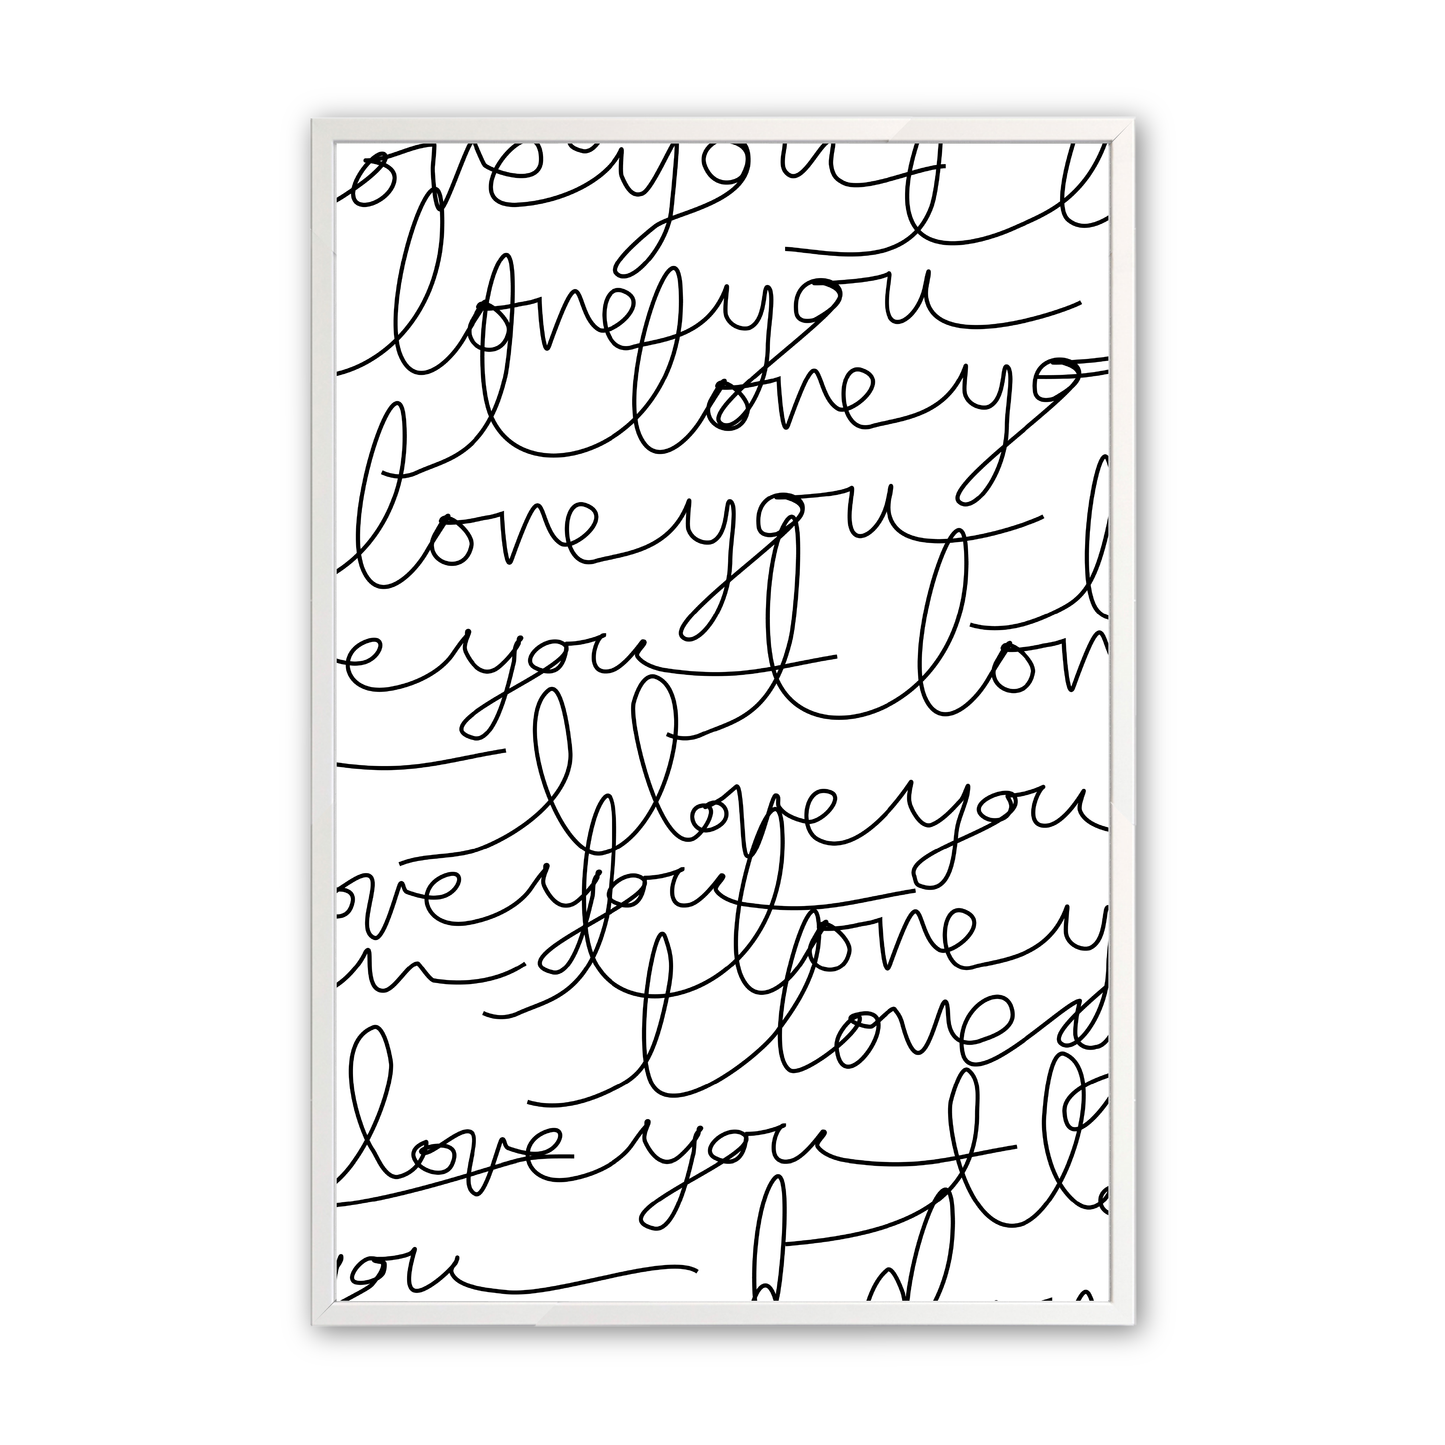 love you I l
love you
I love yo
love you I
e you I lon
I love you
ove you I love y
u I love
love you I lo
you I l